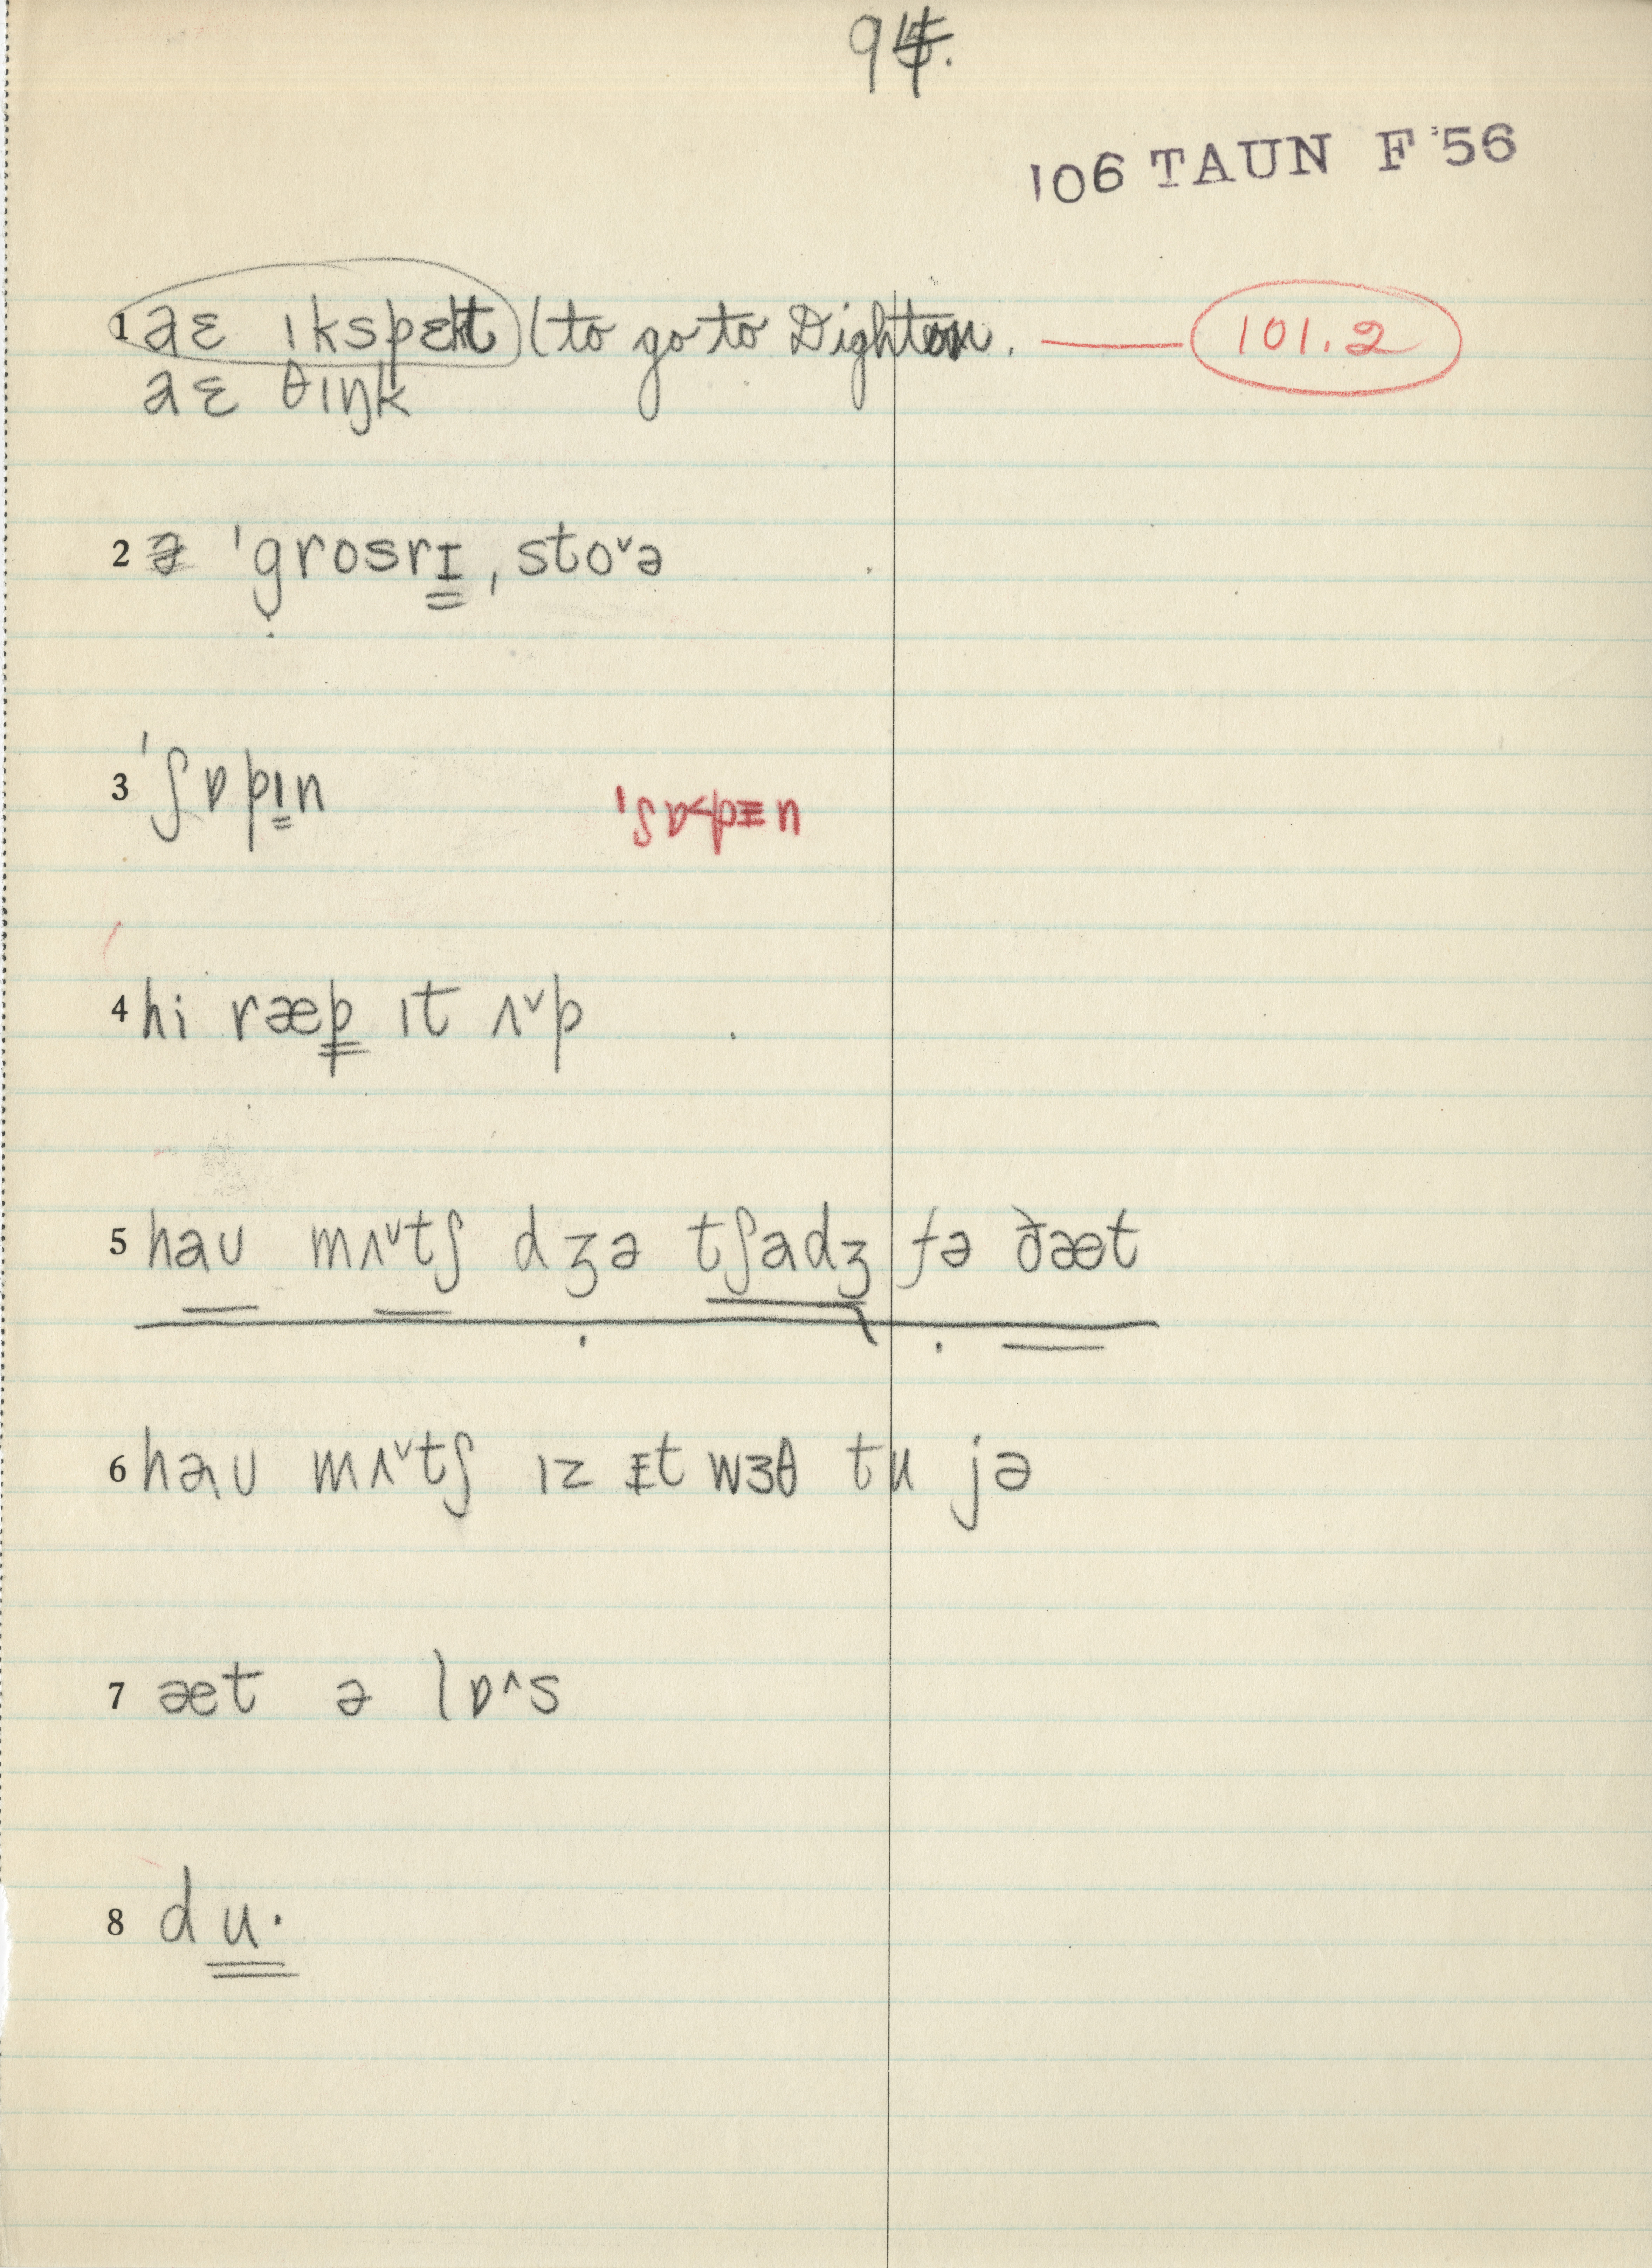 94.
106 TAUN F '56
1 aɛ ɪkspɛkt (to go to Dighton. — 101.2
aɛ θɪŋk
2 ə ˈgrosrɪ ˌstoˇə
3 ˈʃɒpɪn ˈʃɒ<pɪn
4 hi ræp ɪt ʌˇp
5 haʊ mʌˇtʃ dʒə tʃadʒ fə ðæt
6 haʊ mʌˇtʃ ɪz ɪt wɜθ tu jə
7 æt ə lɒ^s
8 du·